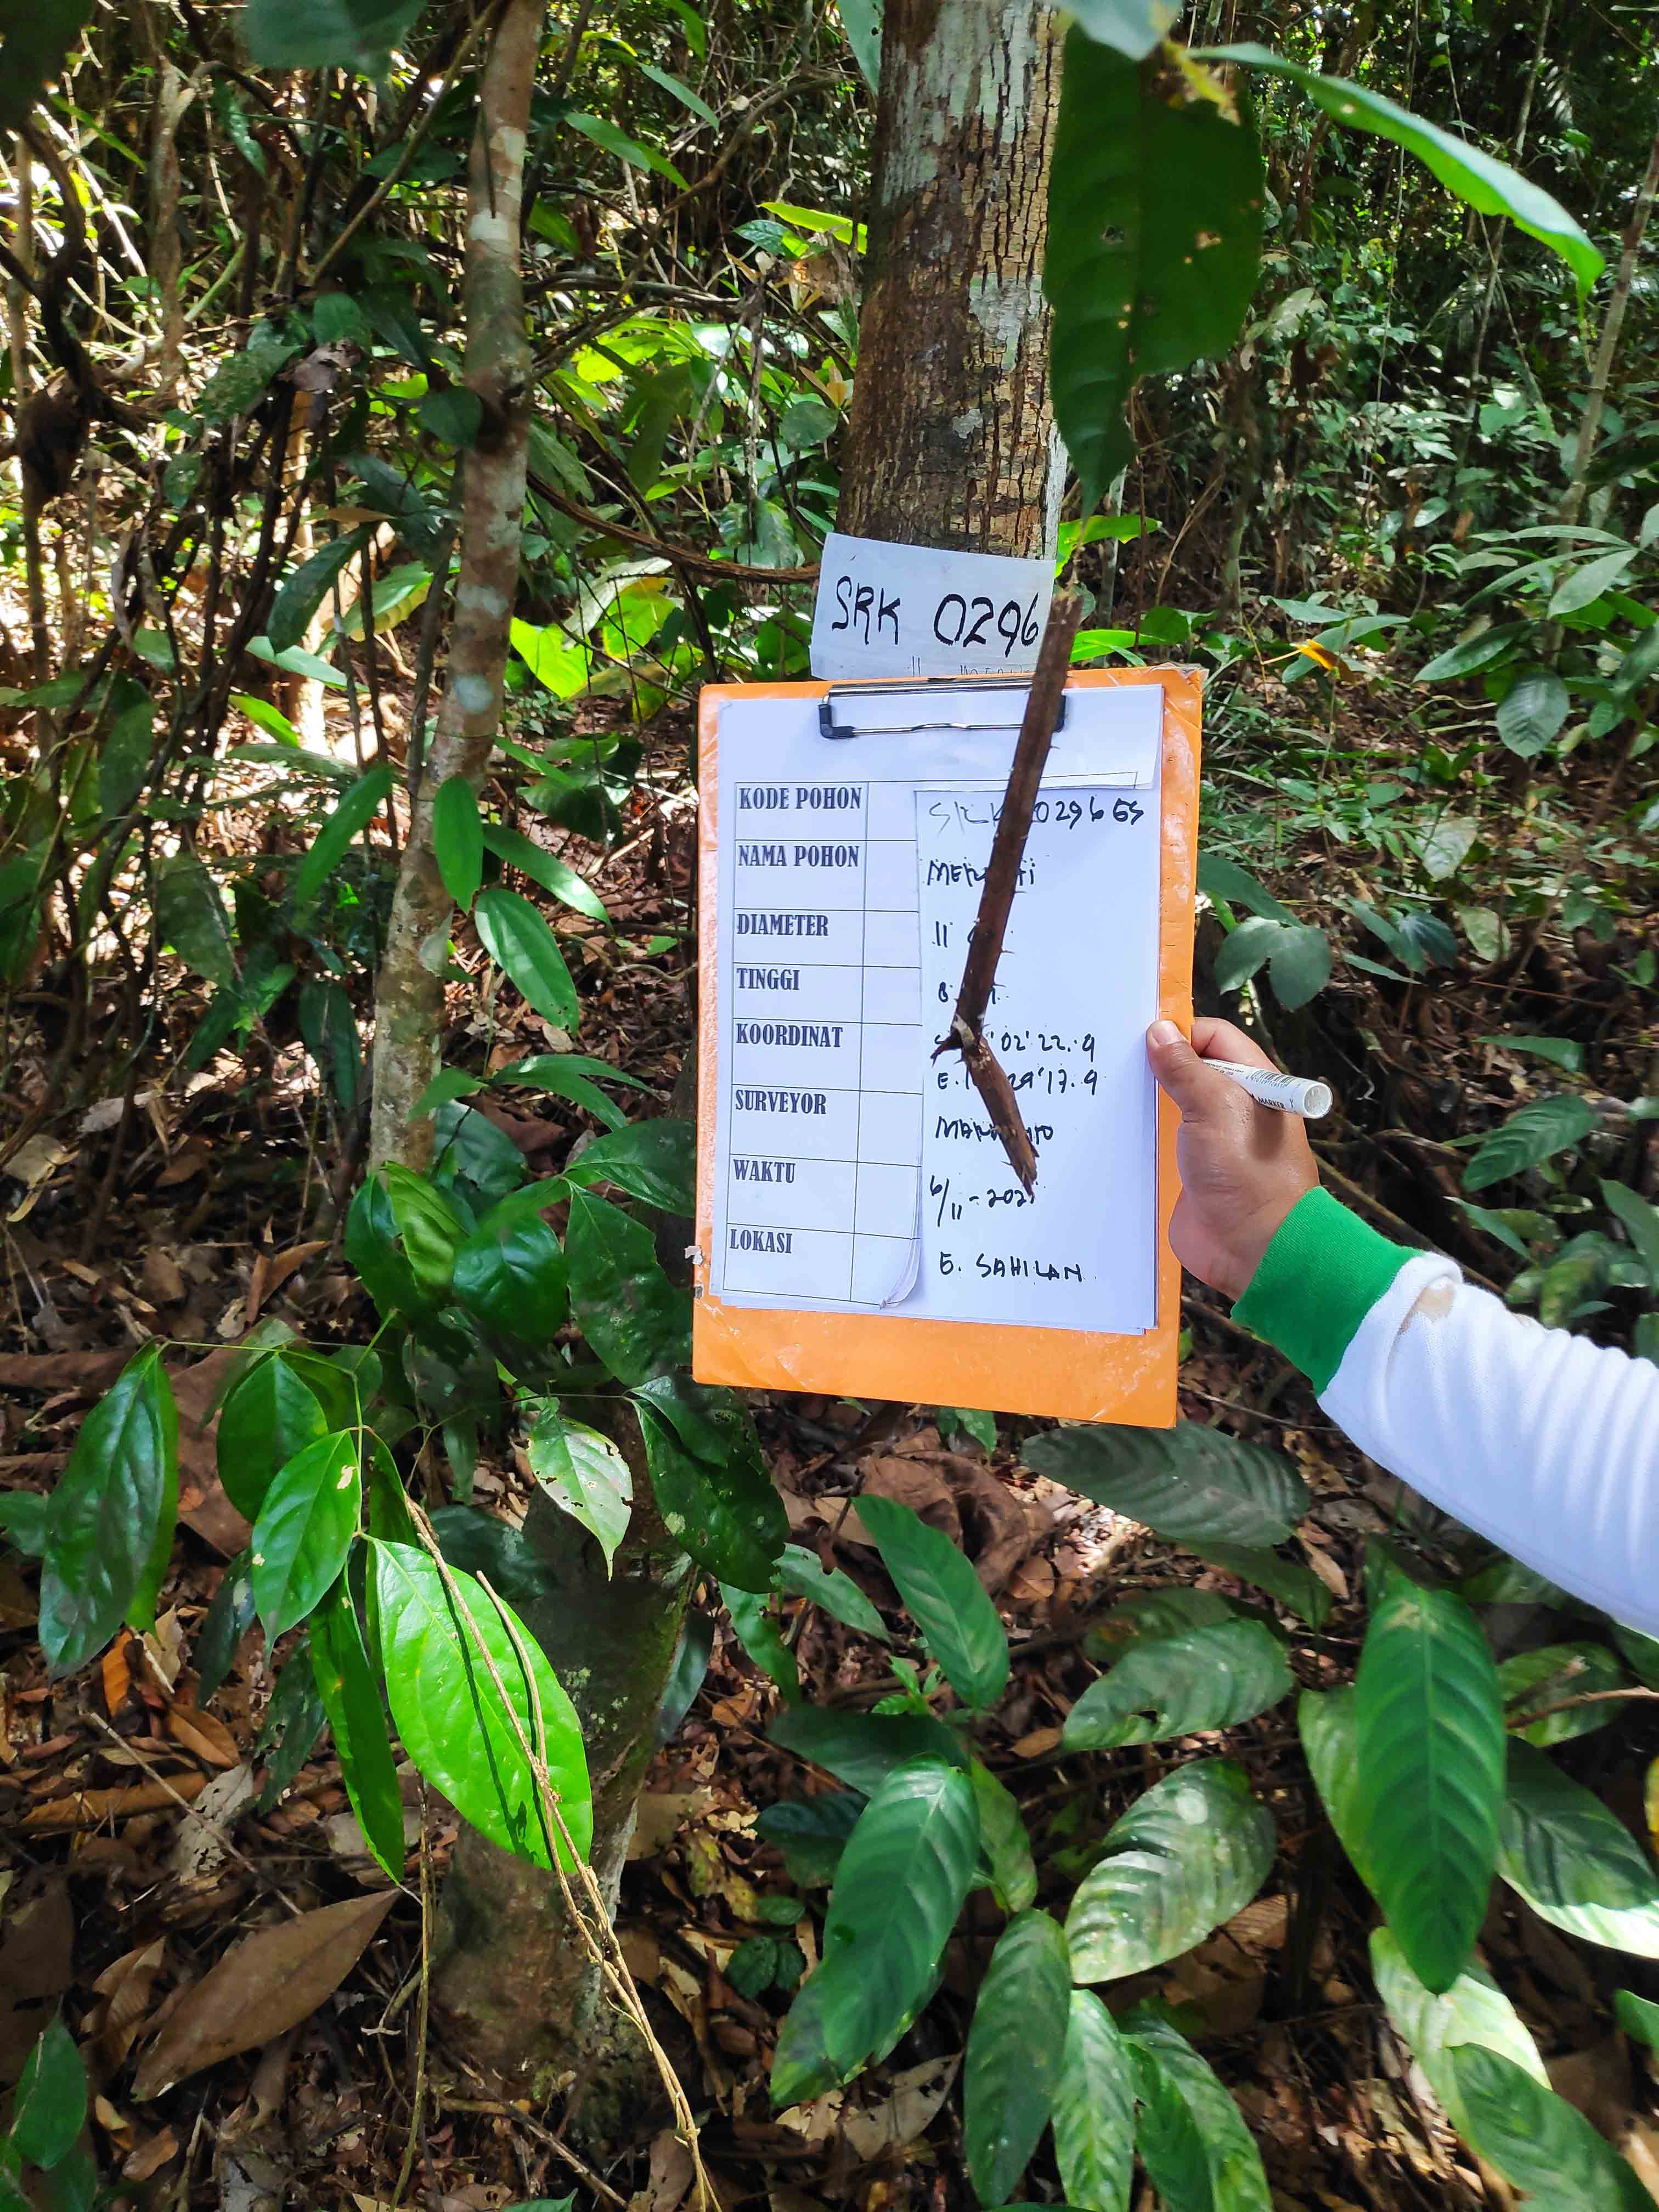 SRK 0296
KODE POHON 0296 ES
NAMA POHON
DIAMETER 11
TINGGI
KOORDINAT 02' 22.9
E. 29' 17.9
SURVEYOR
WAKTU 6/11-202
LOKASI E. SAHILAN
MARKER